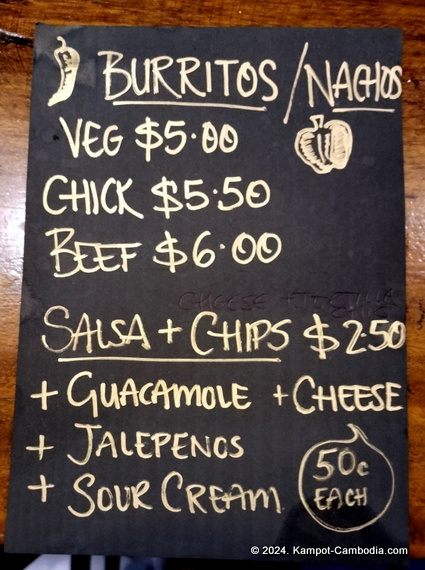 BURRITOS / NACHOS
VEG $5.00
CHICK $5.50
BEEF $6.00
SALSA + CHIPS $250
+ GUACAMOLE + CHEESE
+ JALEPENOS
+ SOUR CREAM
50c
EACH
© 2024. Kampot-Cambodia.com